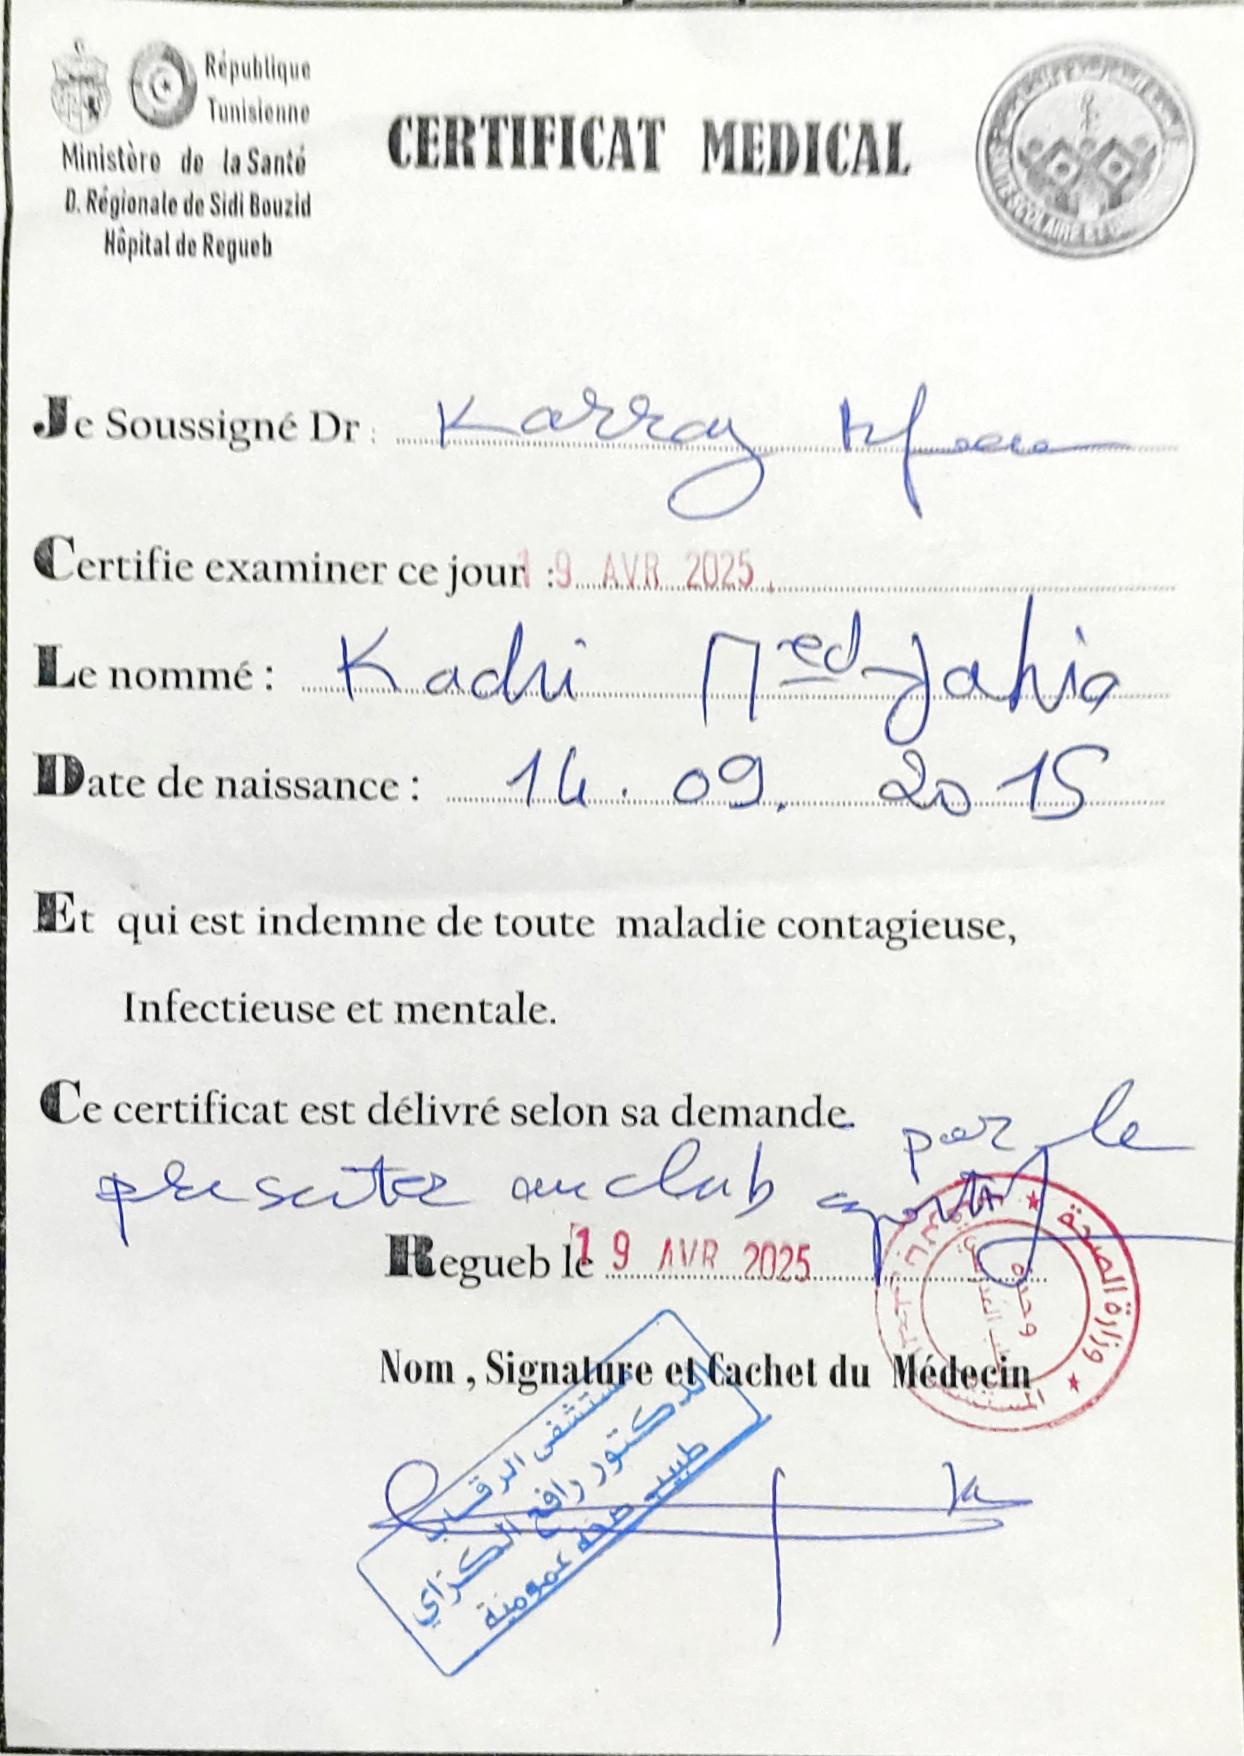 République
Tunisienne
Ministère de la Santé
D. Régionale de Sidi Bouzid
Hôpital de Regueb
CERTIFICAT MEDICAL
SANTE SCOLAIRE ET
Je Soussigné Dr : Karray
Certifie examiner ce jour : 19 AVR 2025
Le nommé : Kadri Med Jahia
Date de naissance : 14. 09. 2015
Et qui est indemne de toute maladie contagieuse,
Infectieuse et mentale.
Ce certificat est délivré selon sa demande. par le
presenter au club sportif
Regueb le 19 AVR 2025
وزارة الصحة
وحدة
Nom , Signature et Cachet du Médecin
مستشفى الرقاب
الدكتور رافع الكراي
طبيب صحة عمومية